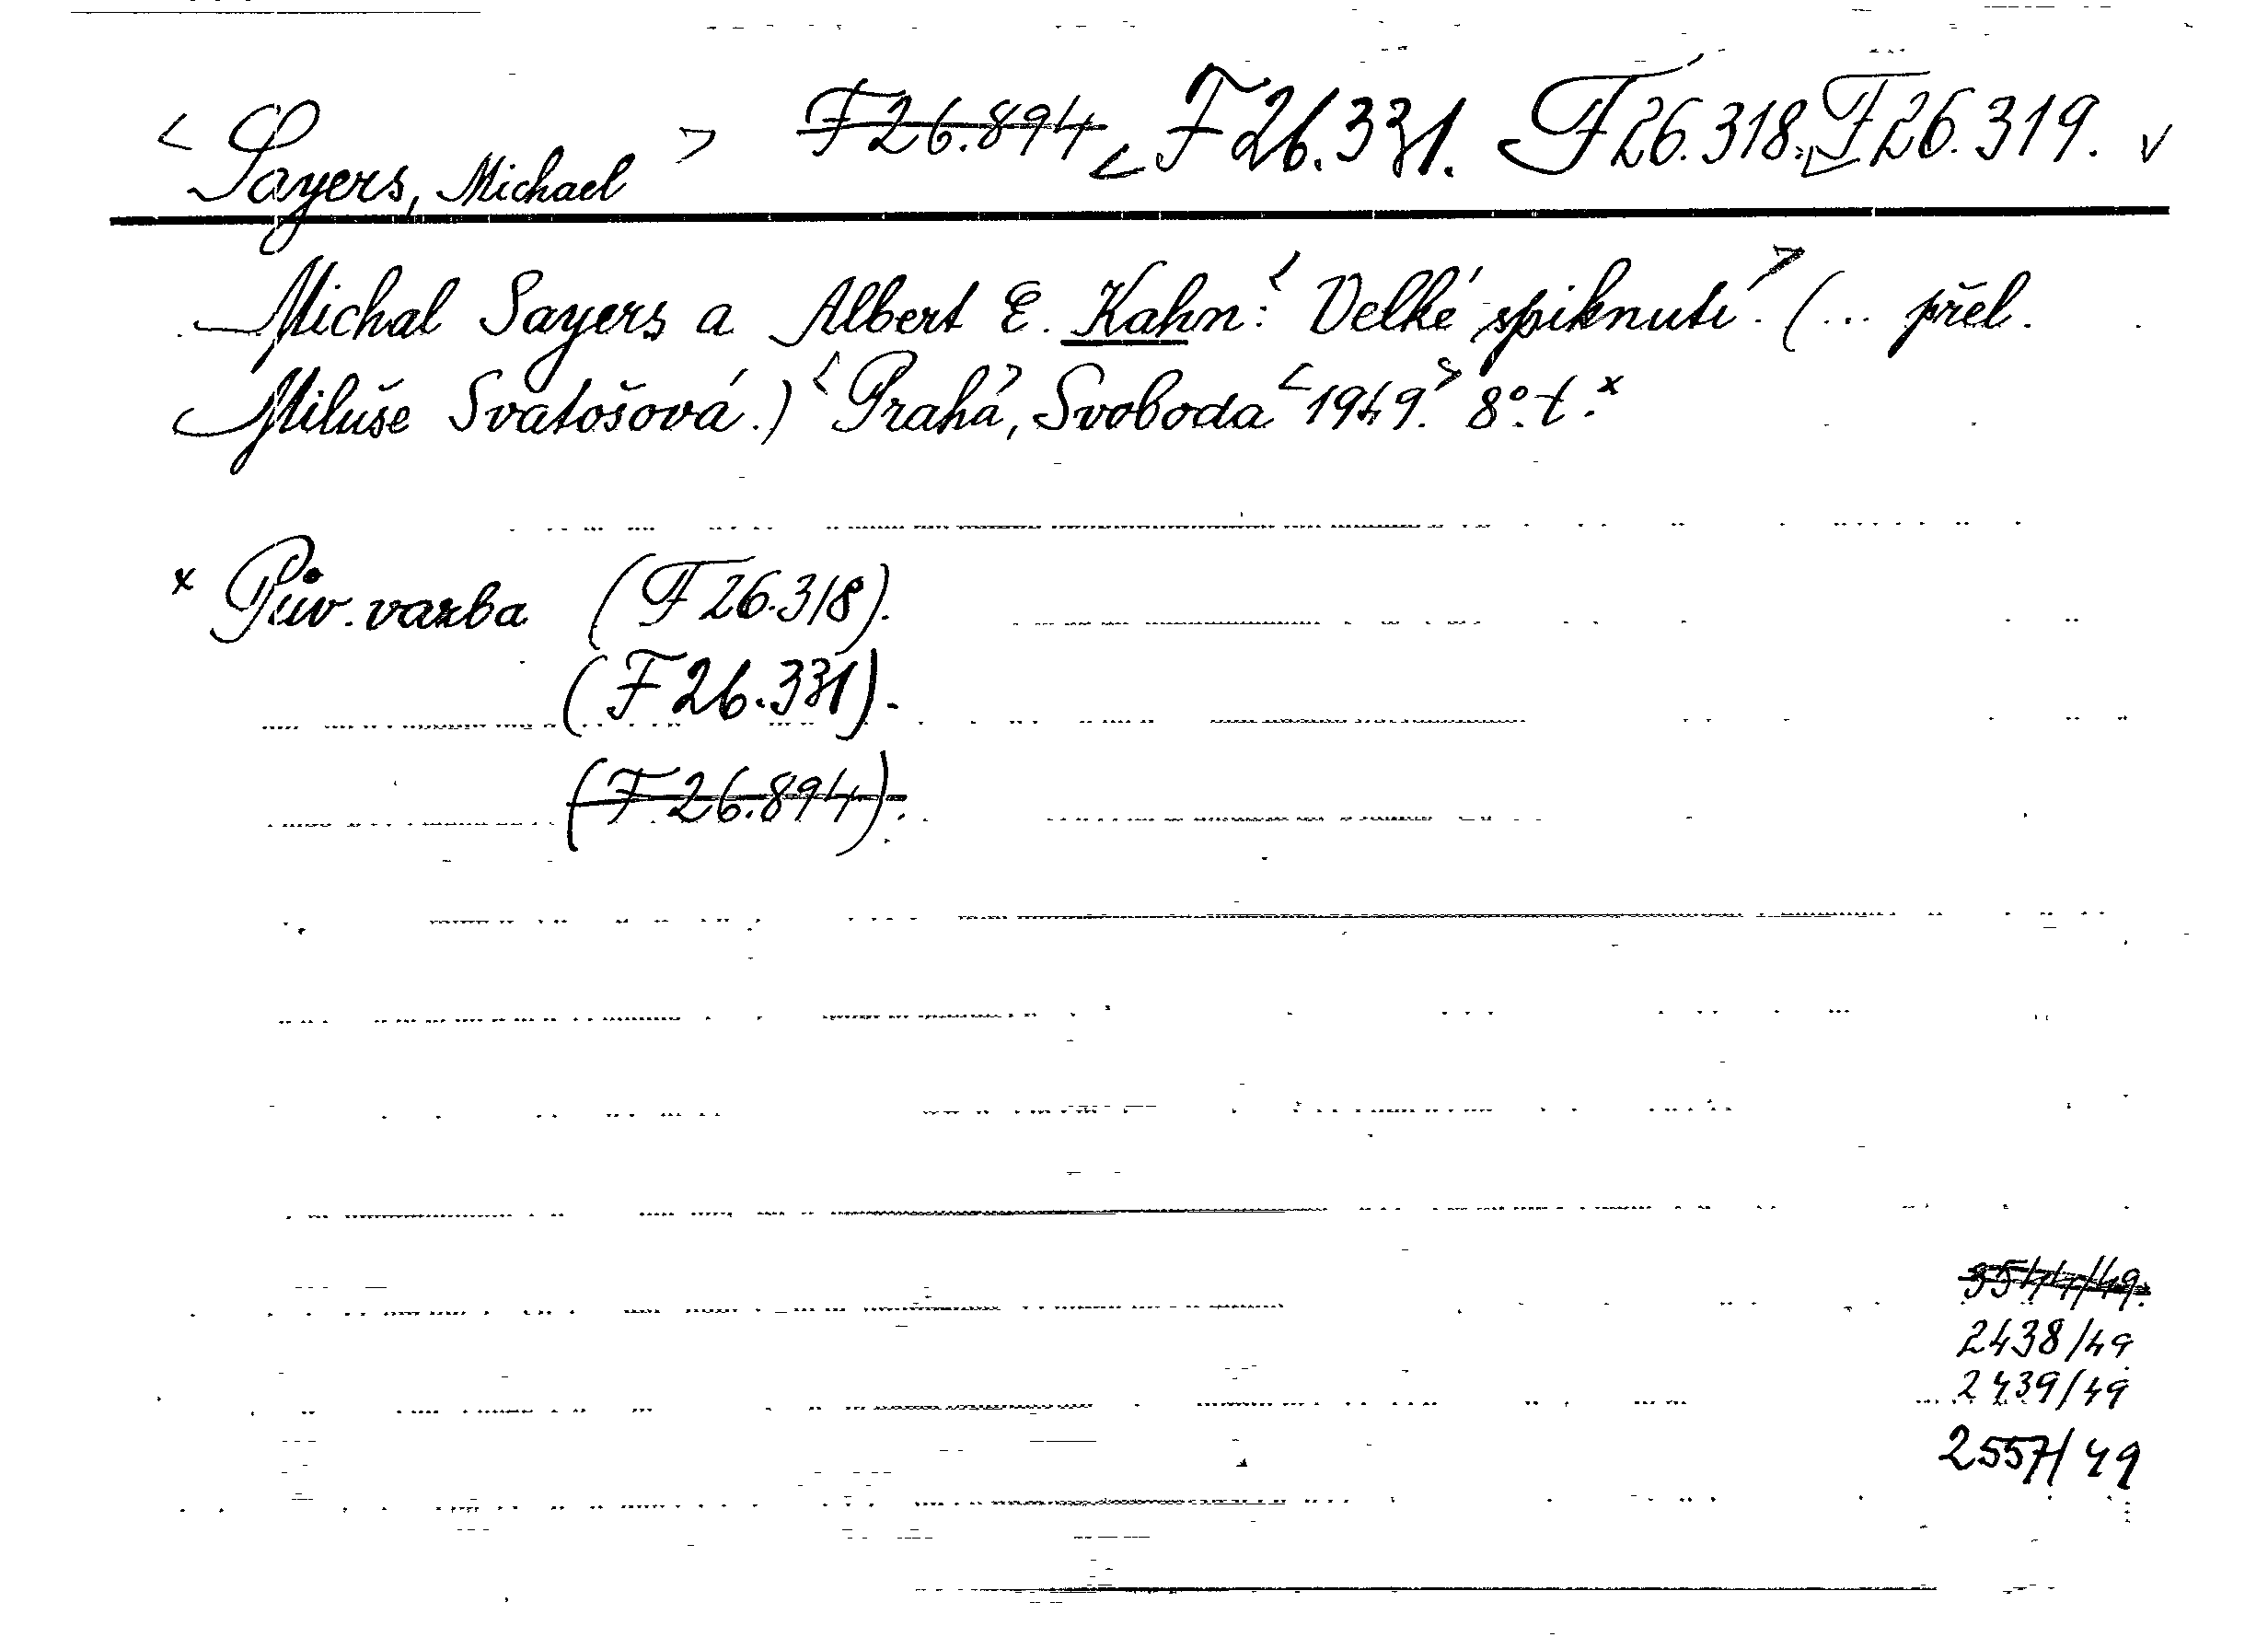 < Sayers, Michael > F 26.894 < F 26.331. F 26.318. F 26.319. v
Michal Sayers a Albert E. Kahn: < Velké spiknutí. > (... přel.
Miluše Svatošová.) < Praha >, Svoboda < 1949. > 8°. t. x
x Pův. vazba (F 26.318).
(F 26.331).
(F 26.894).
2438/49
2439/49
2557/49